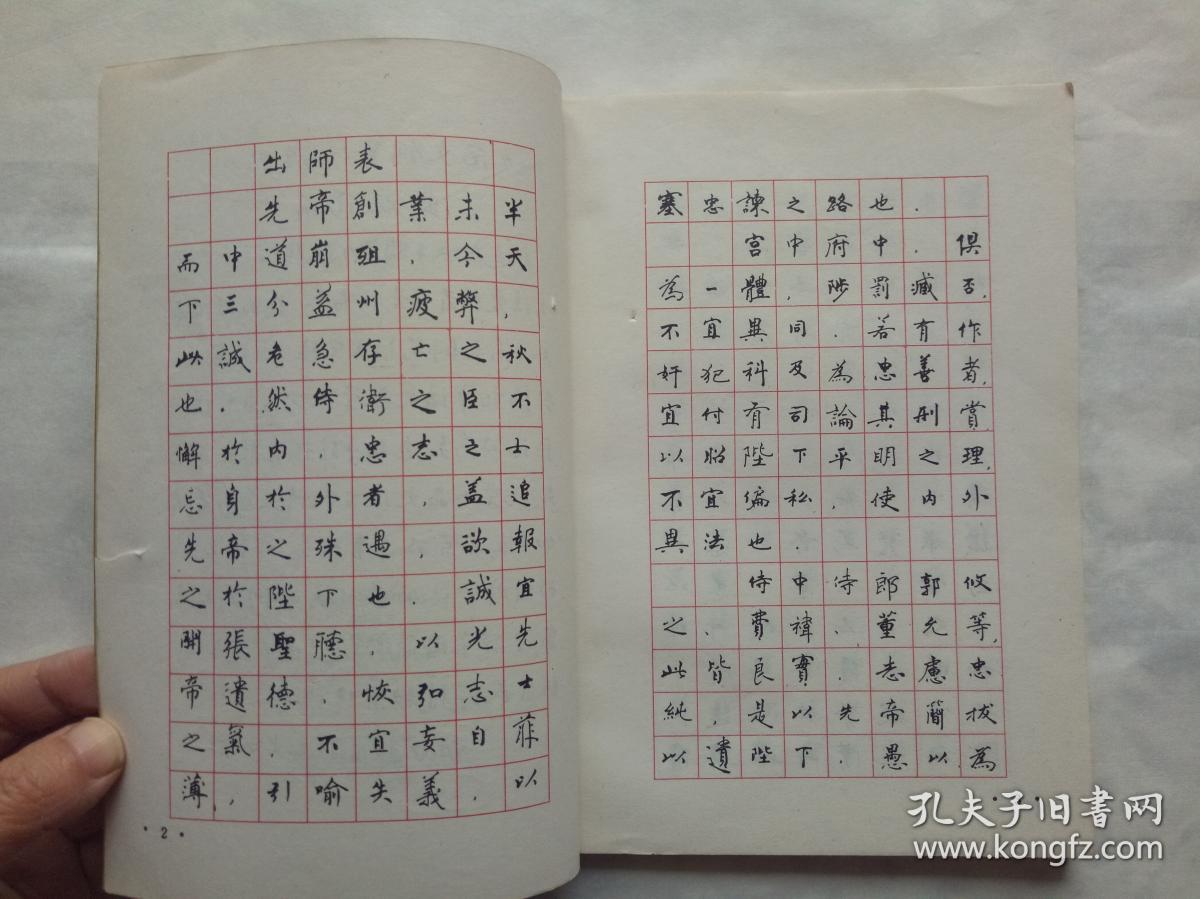 出師表
先帝創業未半
而中道崩殂.今天
下三分益州疲弊,
此誠危急存亡之秋
也.然侍衛之臣不
懈於内,忠志之士
忘身於外者,盖追
先帝之殊遇,欲報
之於陛下也.誠宜
開張聖聽,以光先
帝遺德,恢弘志士
之氣.不宜妄自菲
薄,引喻失義,以
·2·
塞忠諫之路也.
宫中府中.俱
為一體,陟罰臧否,
不宜異同.若有作
奸犯科及為忠善者,
宜付有司論其刑賞,
以昭陛下平明之理,
不宜偏私,使内外
異法也.
侍中、侍郎郭攸
之、費禕、董允等,
此皆良實,志慮忠
純,是以先帝簡拔
以遺陛下.愚以為
孔夫子旧书网
www.kongfz.com